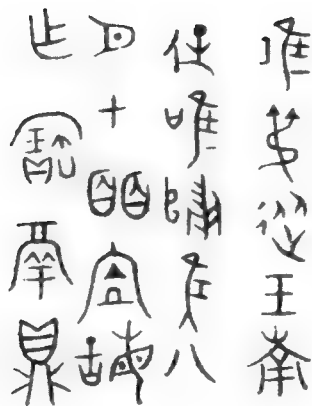 唯叔從王南
征唯歸隹八
月才皕誨
乍寶鬲鼎